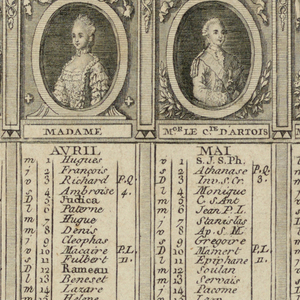 MADAME
AVRIL
m 1 Hugues
j 2 François
v 3 Richard P.Q.
s 4 Ambroise 4.
D 5 Judica
l 6 Paterne
m 7 Hugue
m 8 Denis
j 9 Cleophas
v 10 Macaire P.L.
s 11 Fulbert 11.
D 12 Rameau
l 13 Beneset
m 14 Lazare
Helene
M.GR LE C.TE D'ARTOIS
MAI
v 1 S.J.S.Ph.
s 2 Athanase P.Q.
D 3 Inv. S. Cr. 3.
l 4 Monique
m 5 C. S. Aut
m 6 Jean P.L.
j 7 Stanislas
v 8 Ap. S. M.
s 9 Gregoire
D 10 Mamert P.L.
l 11 Epiphane 11.
m 12 Soulan
m 13 Servais
j 14 Pacome